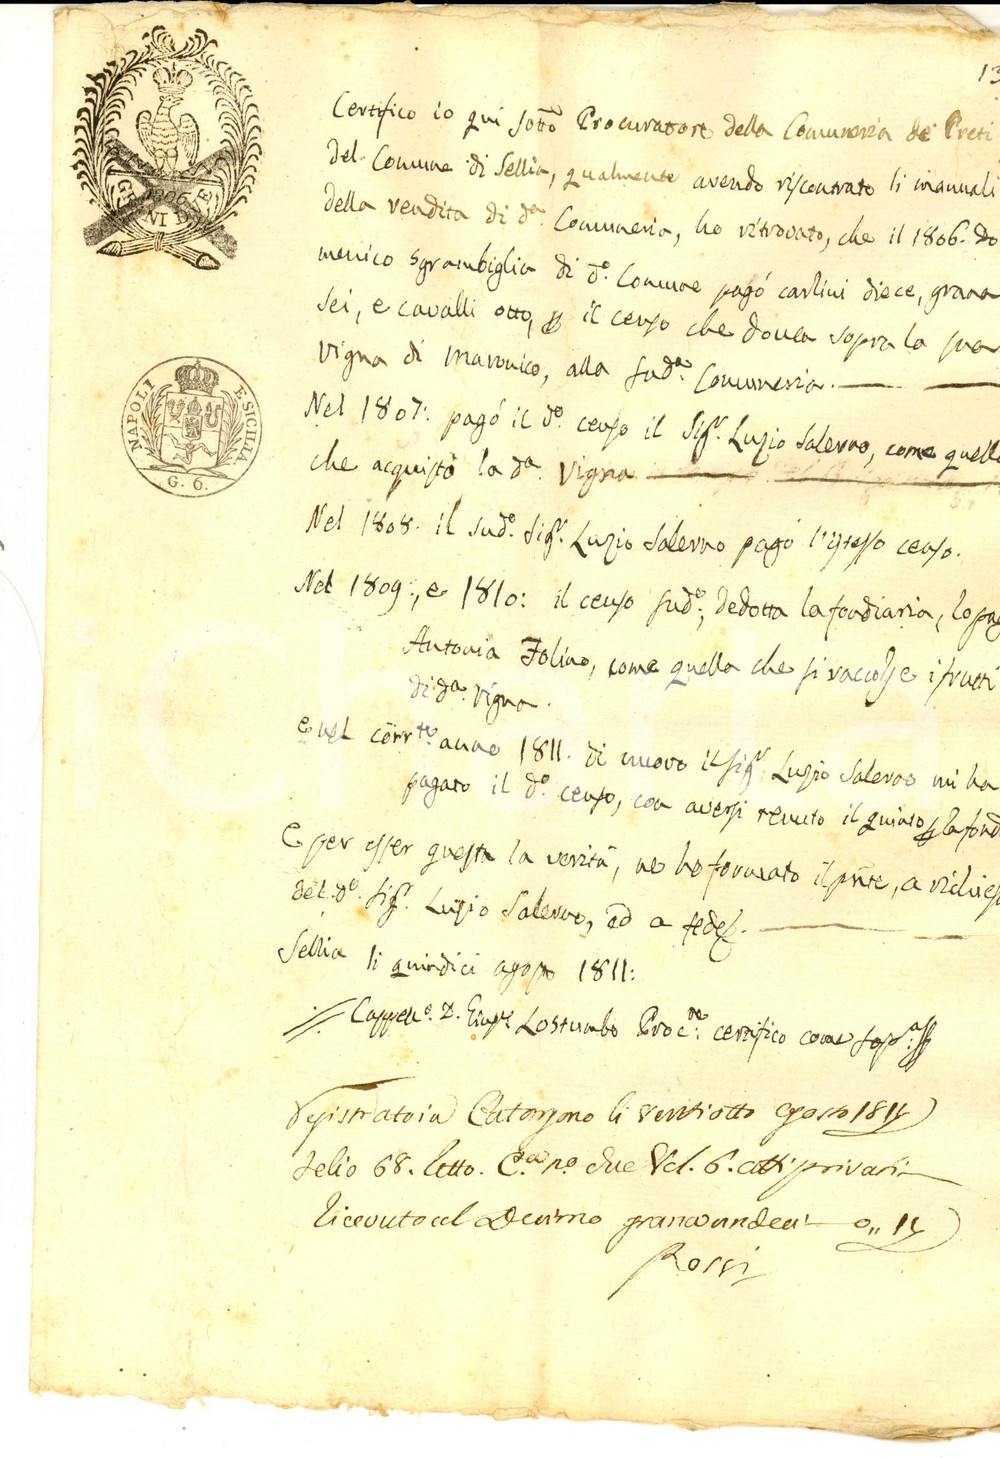 13
Certifico io qui sottõ Procuratore della Comuneria de' Preti
del Comune di Sellia, qualmente avendo riscontrato li manuali
della rendita di dª. Comuneria, ho ritrovato, che il 1806. Do
menico Sgrambiglia di d°. Comune pagò carlini diece, grana
sei, e cavalli otto, il censo che dovea sopra la sua
Vigna di Maronico, alla sudª. Comuneria.
Nel 1807: pagò il d°. censo il Sigr. Luzio Salerno, come quello
che acquistò la dª. Vigna
Nel 1808. il sud°. Sigr. Luzio Salerno pagò l'istesso censo.
Nel 1809:, e 1810: il censo sud°:, dedotta la fondiaria, lo pag
Antonia Folino, come quella che si raccolse i frutti
di dª. Vigna.
e nel corrte. anno 1811. di nuovo il Sigr. Luzio Salerno mi ha
pagato il d°. censo, con aversi tenuto il quinto la fond
E per esser questa la verità, ne ho formato il prñte, a richies
del d°. Sigr. Luzio Salerno, ed a fede.
Sellia li quindici agosto 1811:
Cappell°. D. Giuspe Lostumbo Procre: certifico come sopª:
NAPOLI E SICILIA
G. 6.
1806
GRANI
Registrato in Catanzaro li ventiotto agosto 1811
folio 68. Cª nº due Vol. 6. atti privati
Ricevuto al Decimo grana undeci o,, 11
Rossi